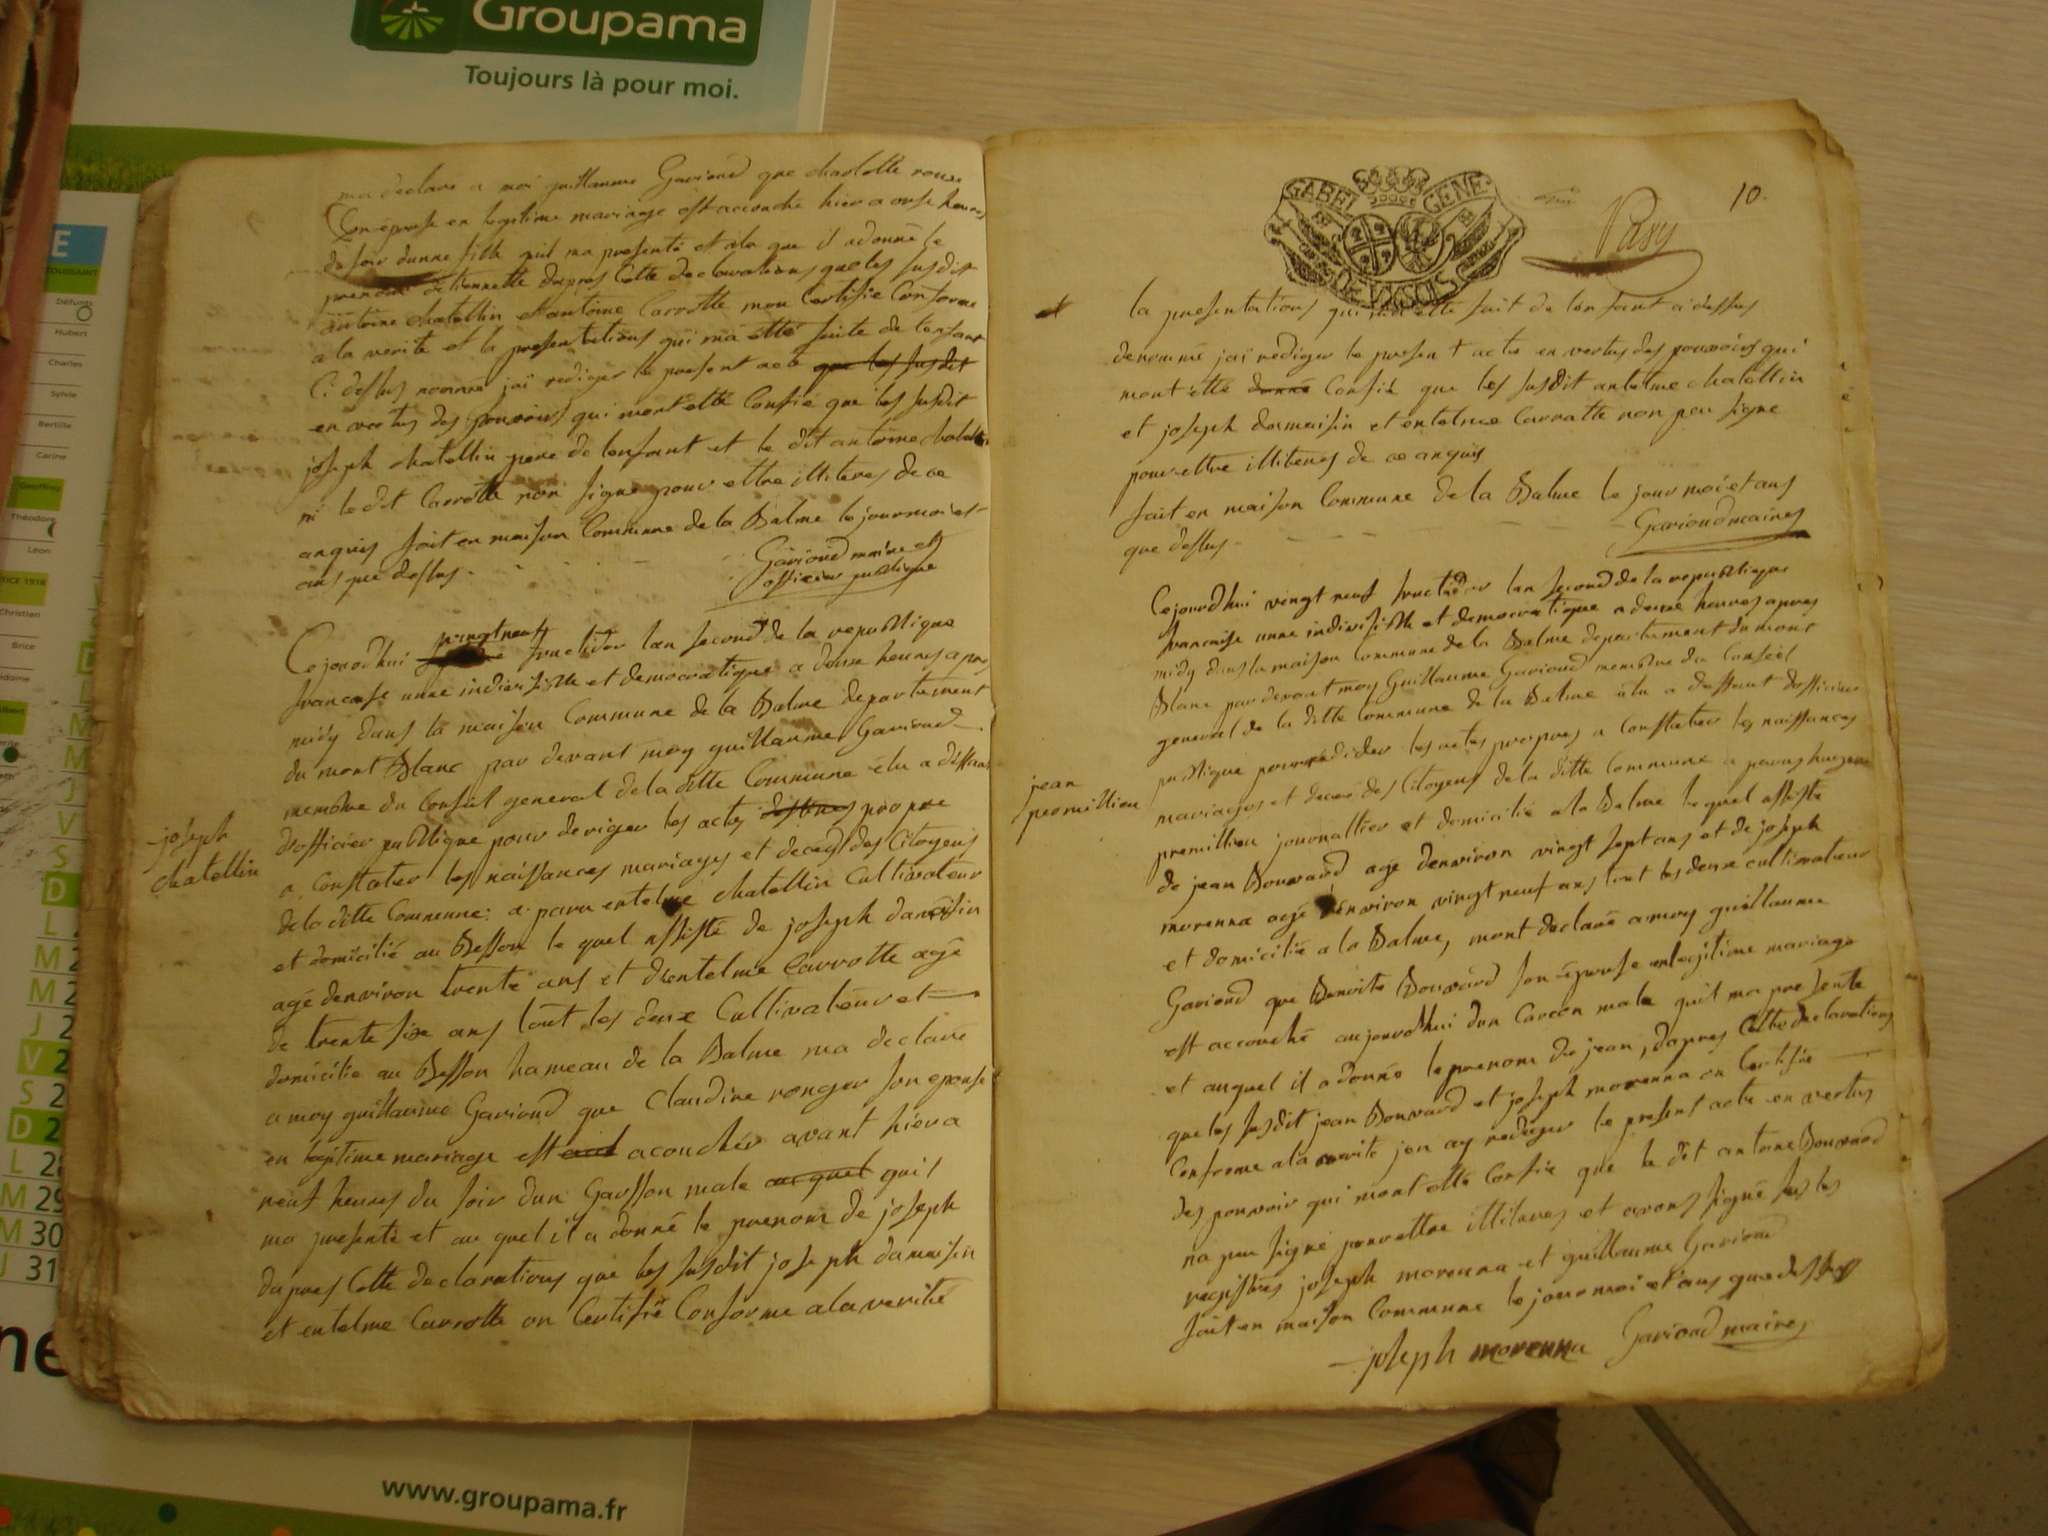 Groupama
Toujours là pour moi.
ma declare a moi guillaume Gavioud que charlotte
Son epouse en legitime mariage est acouché hier a onse heures
du soir dunne fille quil ma presenté et a la que il a donné le
prenom detiennette dapres Cette declarations que les susdit
antoine chatellin et antoine Carrotte mon Certifie Conforme
a la verite et la presentations qui ma etté faite de lenfant
Ci dessus nommé jai rediger le present acte que les susdit
en vertus des pouvoirs qui mont etté Confié que les susdit
joseph chatellin pere de lenfant et le dit antoine chatellin
ni le dit Carrotte non signe pour ettre illiteres de ce
anquis fait en maison Commune de la Balme le jour moi et
ans que dessus.
Gavioud maire et
officier publique
Cejourdhui vingt neuf fructidor lan second de la republique
francaise unne indivisible et democratique a deuse heures apres
midy dans la maison Commune de la Balme departement
du mont Blanc par devant moy guillaume Gavioud
membre du Conseil general de la ditte Commune elu a deffaut
dofficier publique pour deriger les actes propre
a Constater les naissances mariages et deces des Citoyens
joseph
chatellin
de la ditte Commune: a paru entelme chatellin Cultivateur
et domicilié au Besson le quel assisté de joseph damaisin
agé denviron trente ans et dentelme Carrotte agé
de trente sixe ans tout les deux Cultivateur et
domicilie au Besson hameau de la Balme ma declaré
a moy guillaume Gavioud que Claudine ronger son epouse
en legitime mariage est acouchér avant hier a
neuf heures du soir dun Garsson male au quel quil
ma presenté et au quel il a donné le prenom de joseph
dapres Cette declarations que les susdit joseph damaisin
et entelme Carrotte on Certifié Conforme a la verité
10.
GABEL GENE
la presentations qui ma etté fait de lenfant ci dessus
denommé jai rediger le present acte en vertus des pouvoirs qui
mont etté donné Confié que les susdit antelme chatellin
et joseph damaisin et entelme Carratte non peu signe
pour ettre illiteres de ce anquis
fait en maison Commune de la Balme le jour moi et ans
que dessus.
Gavioud maires
Cejourdhui vingt neuf fructidor lan second de la republique
francaise unne indivisible et democratique a deuse heures apres
midy dans la maison Commune de la Balme departement du mont
Blanc par devant moy Guillaume Gavioud membre du Conseil
general de la ditte Commune de la Balme elu a deffaut dofficier
publique pour redider les actes propres a Constater les naissances
jean
premillieu
mariages et deces des Citoyens de la ditte Commune a parus
premillieu journallier et domicilié a la Balme le quel assisté
de jean Bouvard age denviron vingt sept ans et de joseph
morenna agé denviron vingt neuf ans tout les deux cultivateur
et domicilié a la Balme, mont declaré a moy guillaume
Gavioud que Benoite Bouvard son epouse en legitime mariage
est accouché aujourdhui dun Carcon male quil ma presenté
et auquel il a donné le prenom de jean, dapres Cette declarations
que les susdit jean Bouvard et joseph morenna on Certifié
Conforme a la verité jen ay rediger le present acte en vertus
des pouvoir qui mont etté Confié que le dit antoine Bouvard
na peu signé pour ettre illiteres et avons signé sus les
registres joseph morenna et guillaume Gavioud
fait en maison Commune le jour moi et ans que dessus
joseph morenna Gavioud maires
www.groupama.fr